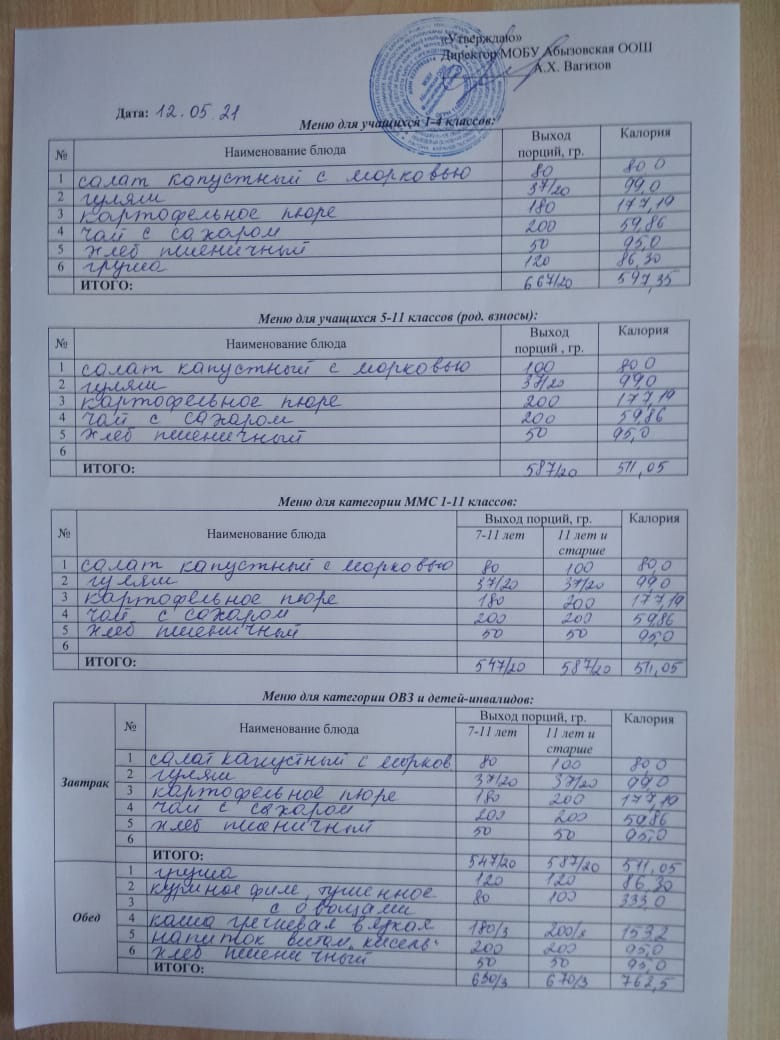 «Утверждаю»
Директор МОБУ Абызовская ООШ
А.Х. Вагизов
Дата: 12.05.21
Меню для учащихся 1-4 классов:
№ Наименование блюда Выход порций, гр. Калория
1 салат капустный с морковью 80 80,0
2 гуляш 37/20 99,0
3 картофельное пюре 180 177,19
4 чай с сахаром 200 59,86
5 хлеб пшеничный 50 95,0
6 груша 120 86,30
ИТОГО: 667/20 597,35
Меню для учащихся 5-11 классов (род. взносы):
№ Наименование блюда Выход порций , гр. Калория
1 салат капустный с морковью 100 80,0
2 гуляш 37/20 99,0
3 картофельное пюре 200 177,19
4 чай с сахаром 200 59,86
5 хлеб пшеничный 50 95,0
6
ИТОГО: 587/20 511,05
Меню для категории ММС 1-11 классов:
№ Наименование блюда Выход порций, гр. Калория
7-11 лет 11 лет и старше
1 салат капустный с морковью 80 100 80,0
2 гуляш 37/20 37/20 99,0
3 картофельное пюре 180 200 177,19
4 чай с сахаром 200 200 59,86
5 хлеб пшеничный 50 50 95,0
6
ИТОГО: 547/20 587/20 511,05
Меню для категории ОВЗ и детей-инвалидов:
№ Наименование блюда Выход порций, гр. Калория
7-11 лет 11 лет и старше
Завтрак
1 салат капустный с морков 80 100 80,0
2 гуляш 37/20 37/20 99,0
3 картофельное пюре 180 200 177,19
4 чай с сахаром 200 200 59,86
5 хлеб пшеничный 50 50 95,0
6
ИТОГО: 547/20 587/20 511,05
Обед
1 груша 120 120 86,30
2 куриное филе, тушенное 80 100 333,0
3 с овощами
4 каша гречневая вязкая 180/3 153,2
5 напиток витам. кисель" 200 200 95,0
6 хлеб пшеничный 50 50 95,0
ИТОГО: 630/3 670/3 762,5